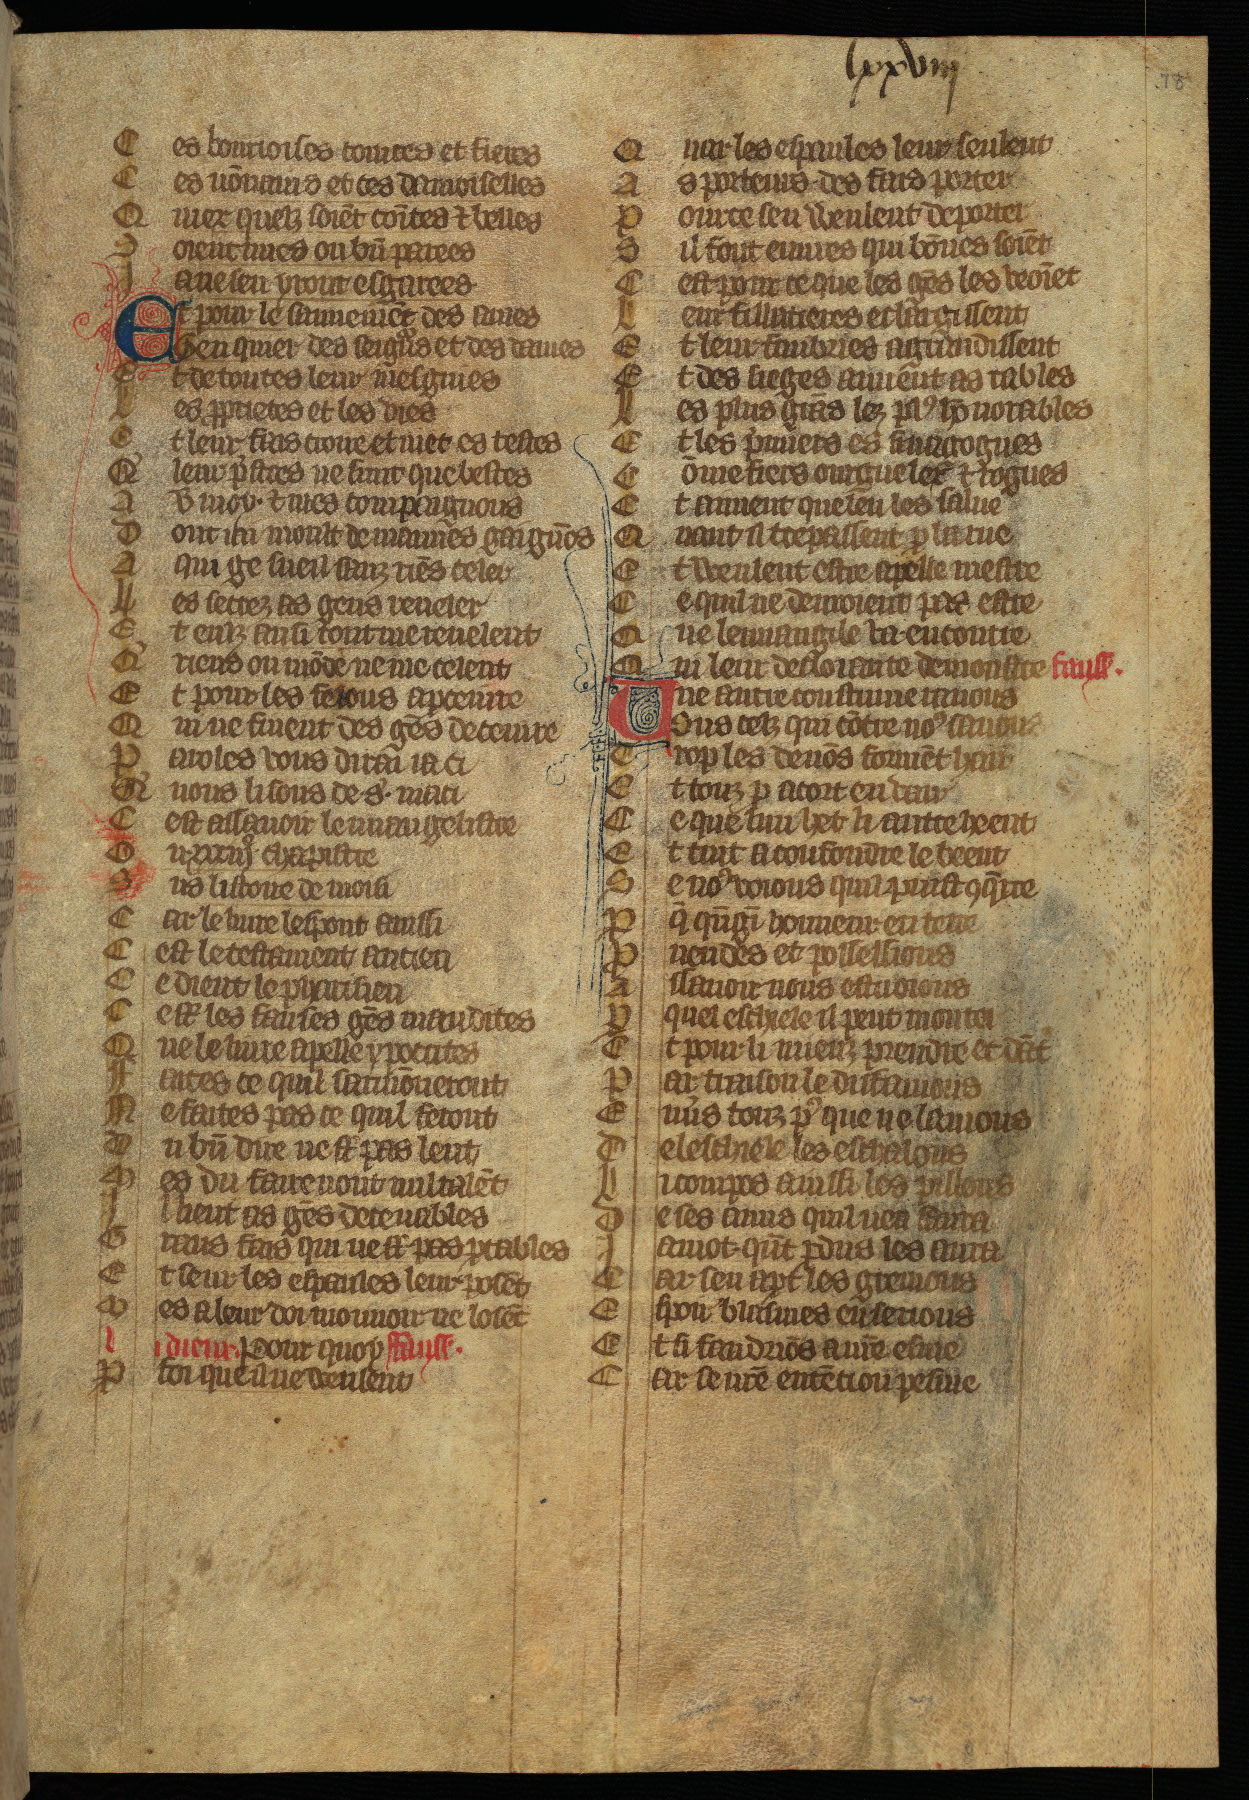 lxxviii
78
C es bourioises cointes et fieres
C es nōnains et ces damoiselles
Q uier quelz soiēt coītes ⁊ belles
S oient nues ou bn̄ parees
J a ne sen yront esgarees
Et pour le sauuemēt des ames
G en quier des seign̄s et des dames
E t de toutes leur mesgnies
L es ꝓprietes et les vies
E t leur fras croire et met es testes
Q leur p̄stres ne sunt que bestes
A v moy ⁊ mes compaignons
D ont iai moult de mauuēs gaignōs
A qui ge sueil sanz riēs celer
L es secrez as gens reueler
E t eulz ausi tout me reuelent
Q riens ou mōde ne me celent
E t pour les felons apceuire
Q ui ne finent des gēs deceuire
P aroles vous dirai ia ci
Q nous lisons de .s. maci
C est assauoir leuuangelistre
O u xxiij chapistre
S us listoire de moisi
C ar le liure lespont ainsi
C est le testament ancien
C e dient le pharisien
C est les fauses gēs maudites
Q ue le liure apelle ypocrites
F aites ce quil sarmōneront
N e faites pas ce quil feront
D u bn̄ dire ne st̄ pas lent
M es du faire nont nul talēt
J l lient as gēs deceuables
G rans fais qui ne st̄ pas portables
E t seur les espaules leur posēt
M es a leur doi mouuoir ne losēt
li dieux. Pour quoy fauss̄.
P foi que il ne veulent
Q uar les espaules leur seulent
A s porteurs des fais porter
P our ce sen veulent deporter
S il font euures qui bōnes soiēt
C est pour ce que les gēs les veoiēt
L eur fillatieres eslargissent
E t leur fimbries agrandissent
E t des sieges aimēnt as tables
L es plus grās lez plꝰ hōnorables
E t les p̄miers es sinagogues
C ōme fiers orguelex ⁊ rogues
E t aiment que len les salue
Q uant il trepassent p la rue
E t veulent estre apelle mestre
C e quil ne deuroient pas estre
Q ue leuuangile va encontre
Q ui leur desloiaute demonstre fauss̄.
Une autre coustume rauons
Sus celz qui cōtre noꝰ sauons
T rop les deuōs formēt hair
E t touz p acort enuair
C e que lun het li autre heent
E t tuit a confondre le beent
S e noꝰ voions quil puist 9q̄rre
P honneur en terre
P uendes et possessions
A ssauoir nous estudions
P quel eschiele il peut monter
E t pour li mieuz prendre et dāt
P ar traison le diffamons
E nūs touz pꝰ que ne lamons
D e leschiele les eschalons
L i compos ainssi les pillons
D e ses amis quil nen saura
J a mot qn̄t ꝑdus les aura
C ar sen apt̄ les greuions
E spoir blasmes en serions
E t si faudriōs a nr̄e esme
C ar se nr̄e entēcion pesme